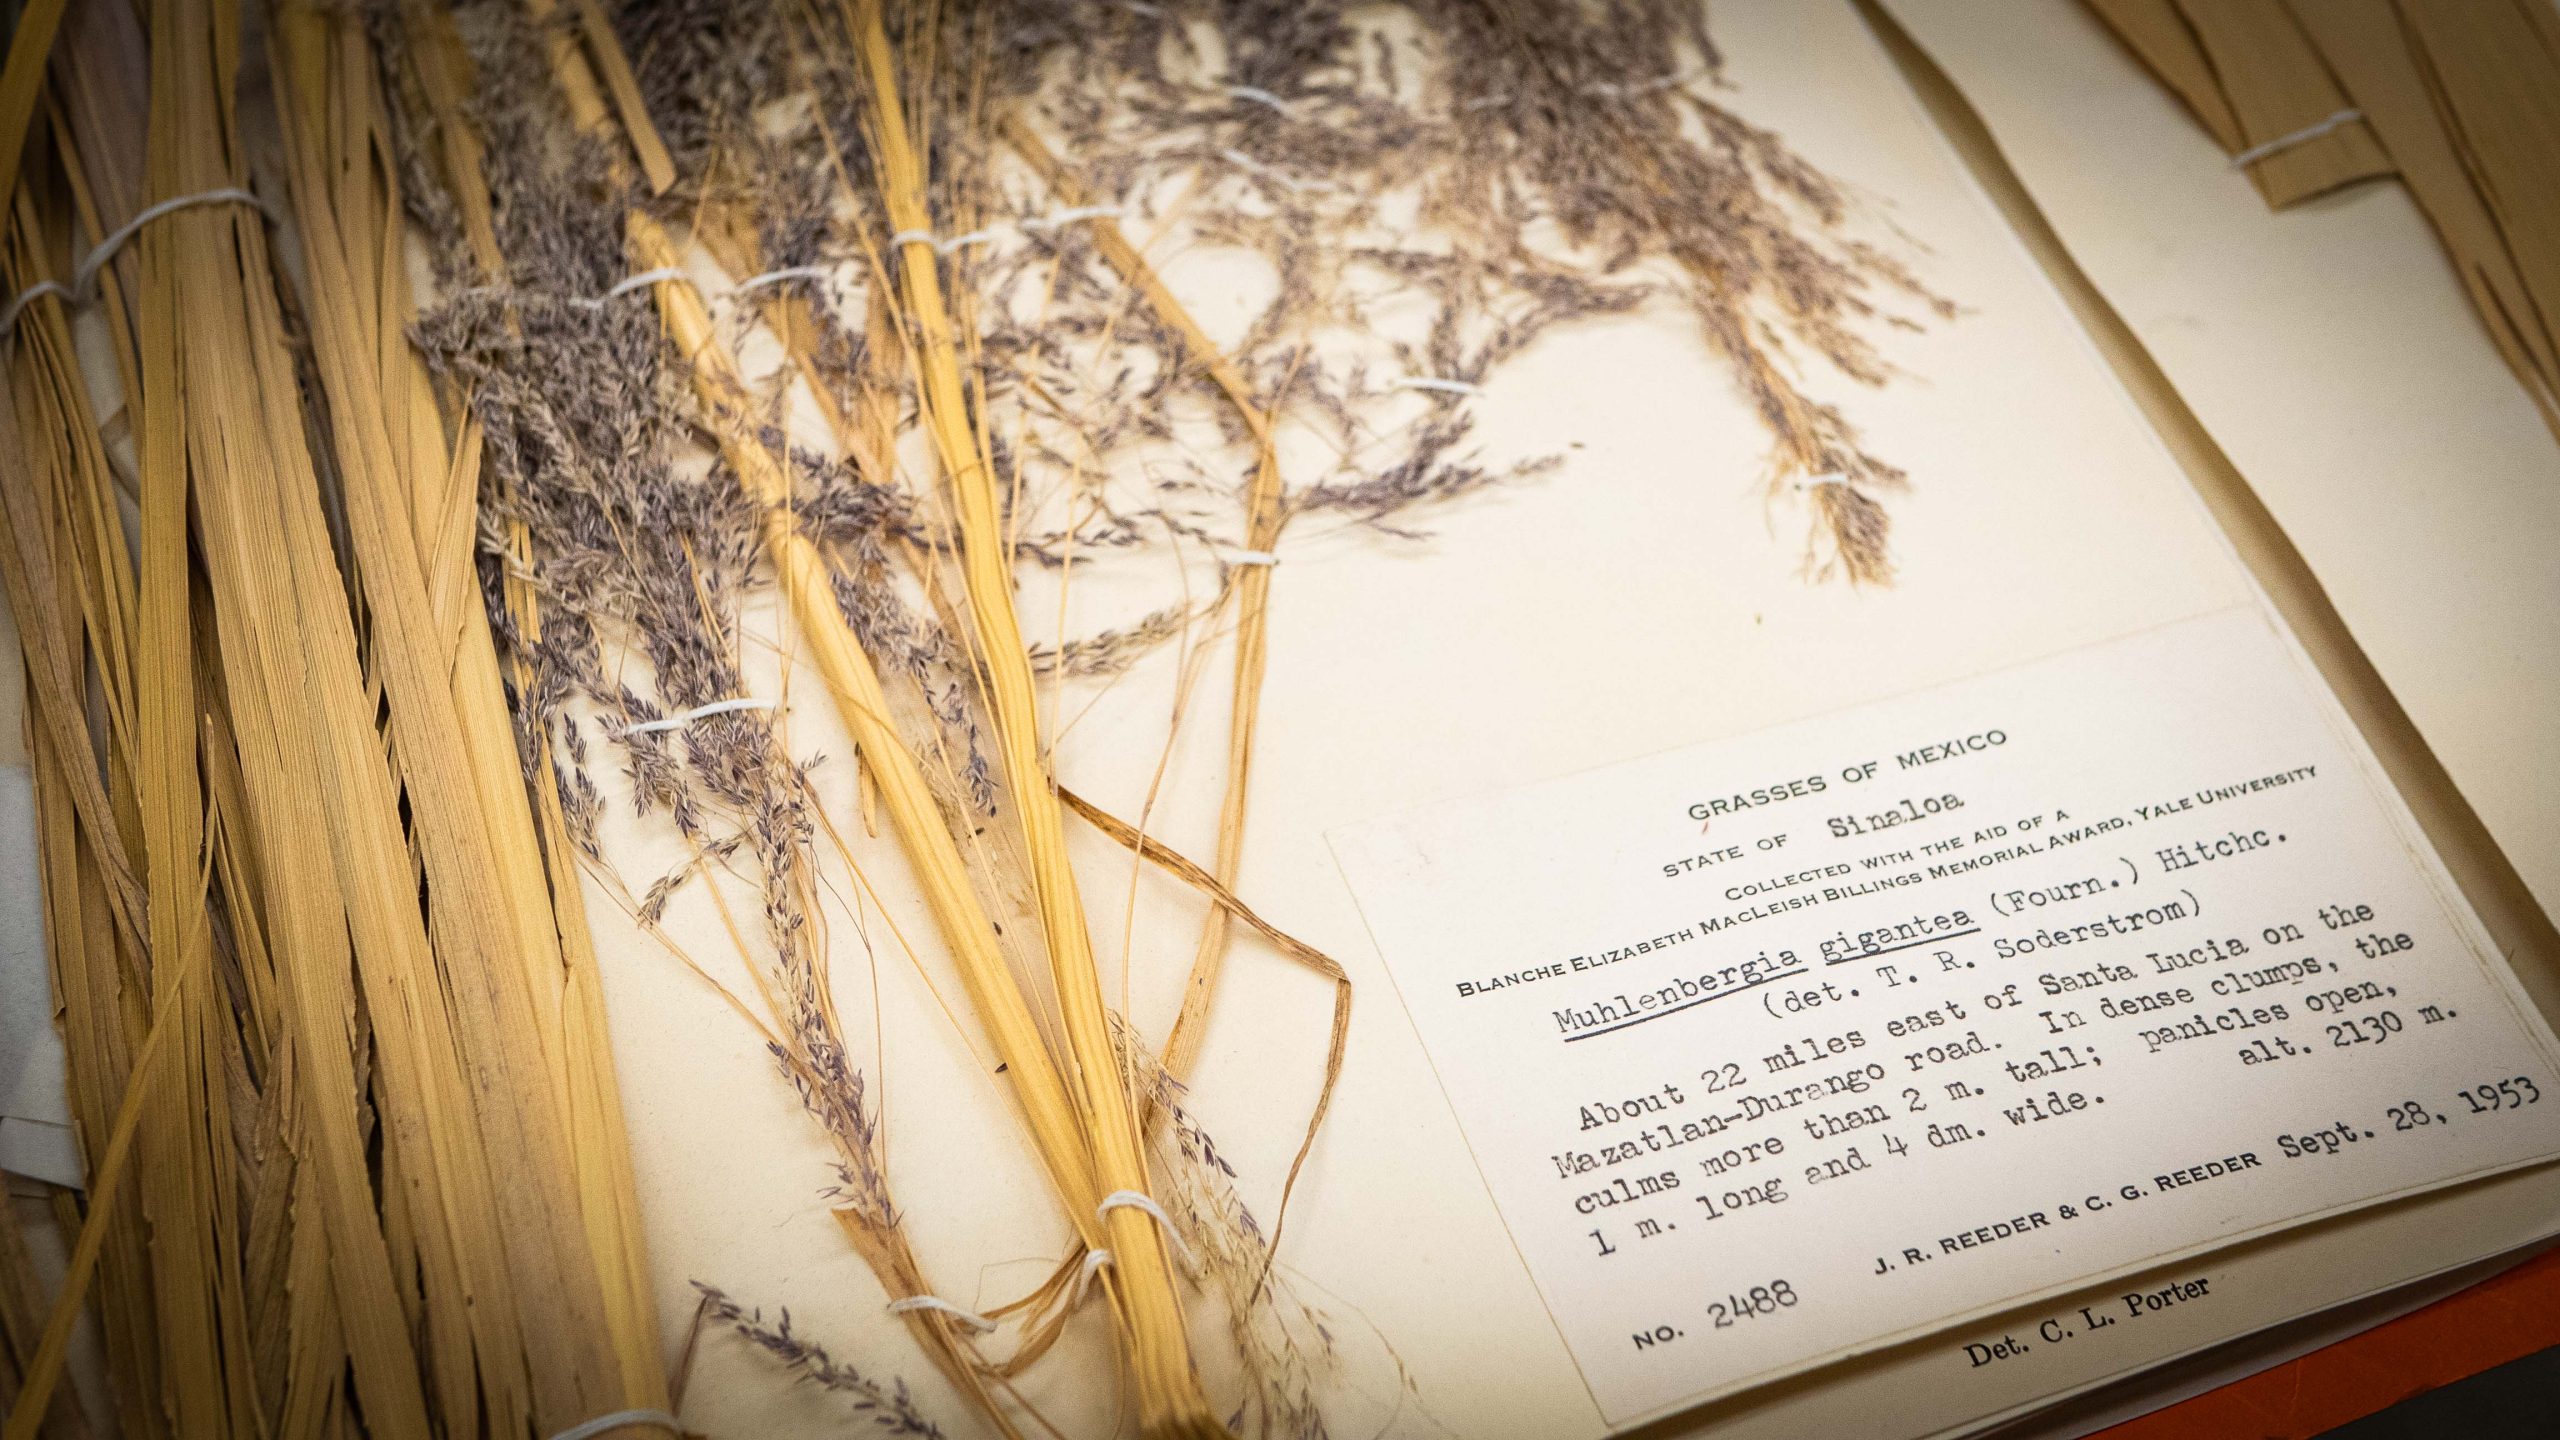 GRASSES OF MEXICO
STATE OF Sinaloa
COLLECTED WITH THE AID OF A
BLANCHE ELIZABETH MACLEISH BILLINGS MEMORIAL AWARD, YALE UNIVERSITY
Muhlenbergia gigantea (Fourn.) Hitchc.
(det. T. R. Soderstrom)
About 22 miles east of Santa Lucia on the
Mazatlan-Durango road. In dense clumps, the
culms more than 2 m. tall; panicles open,
1 m. long and 4 dm. wide. alt. 2130 m.
J. R. REEDER & C. G. REEDER Sept. 28, 1953
NO. 2488
Det. C. L. Porter